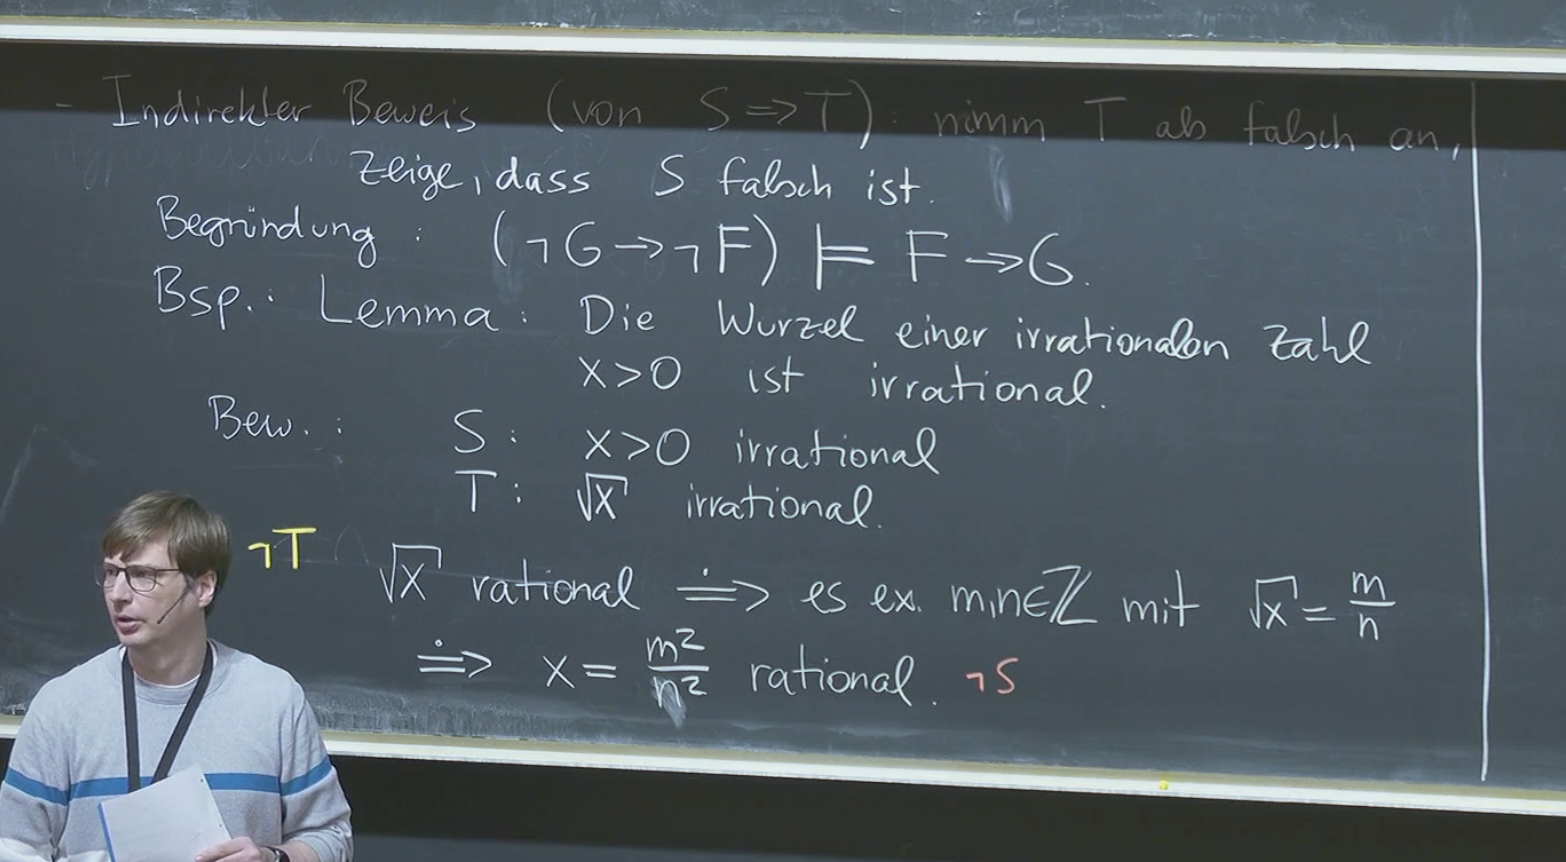 - Indirekter Beweis (von S ⇒ T): nimm T als falsch an,
zeige, dass S falsch ist.
Begründung: (¬G → ¬F) ⊨ F → G.
Bsp.: Lemma: Die Wurzel einer irrationalen Zahl
x > 0 ist irrational.
Bew.: S: x > 0 irrational
T: √x irrational.
¬T √x rational ⇒̇ es ex. m,n∈ℤ mit √x = m/n
⇒̇ x = m²/n² rational. ¬S